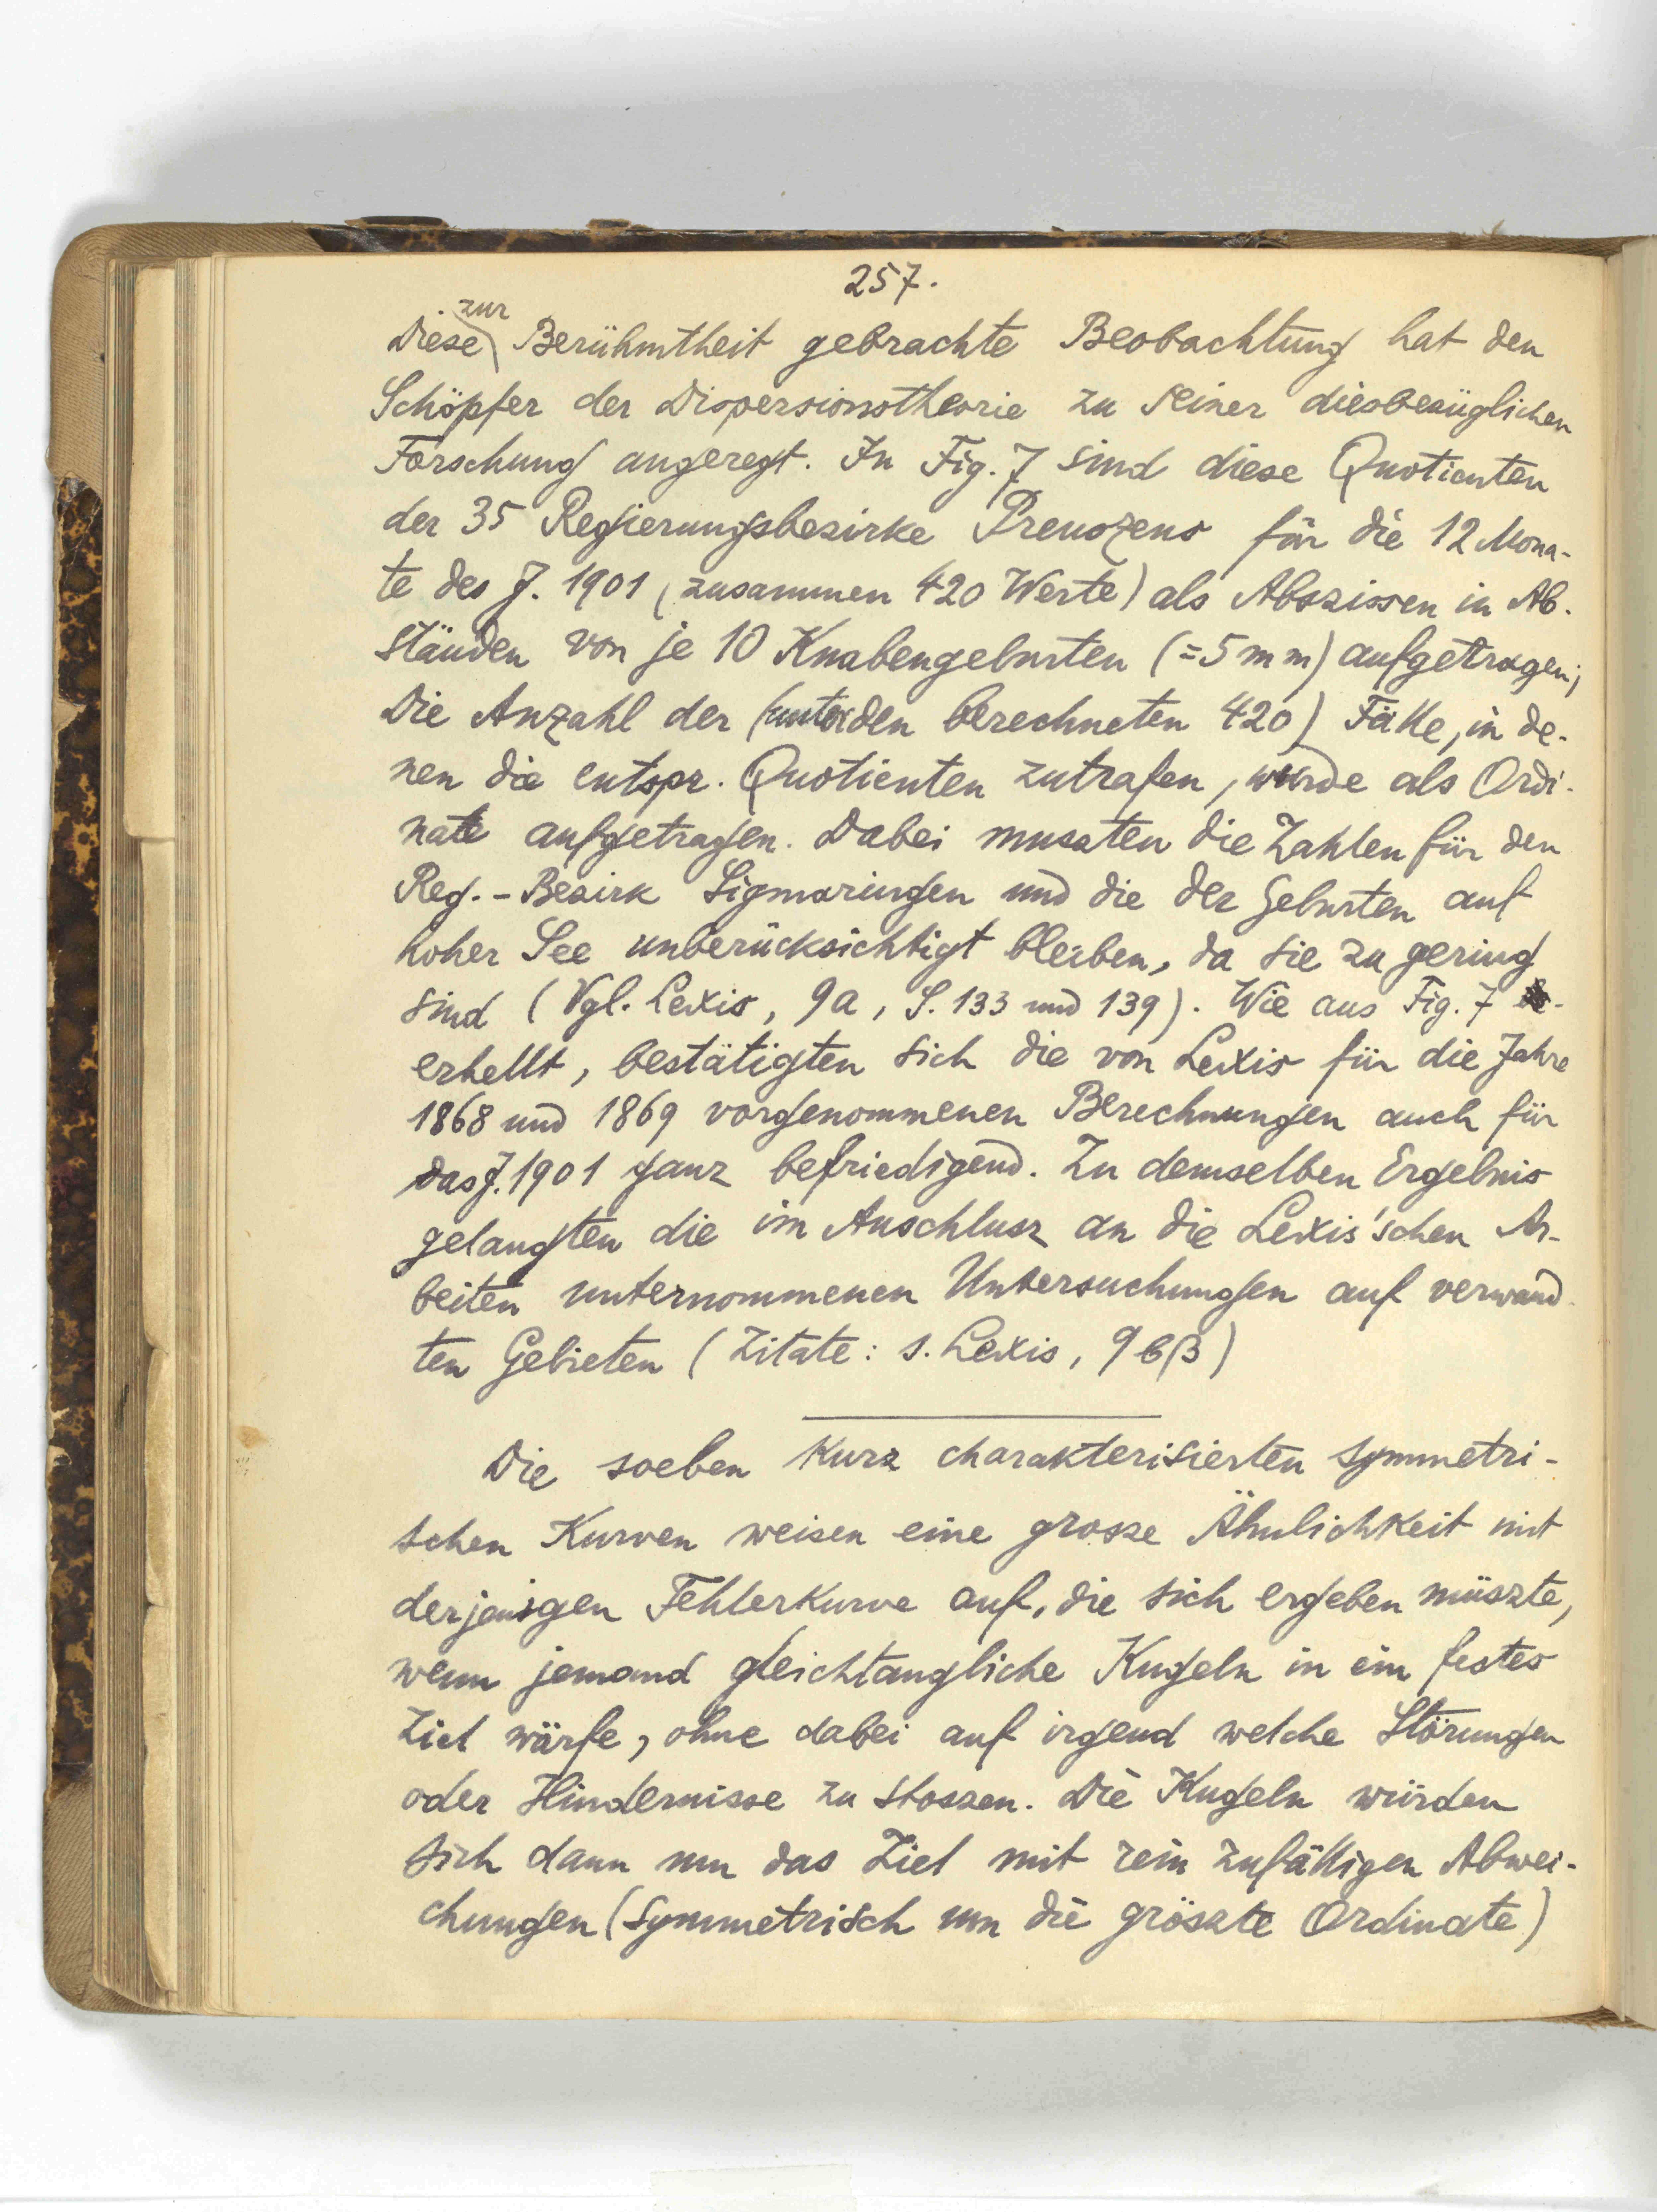 257.
Diese zur Berühmtheit gebrachte Beobachtung hat den
Schöpfer der Dispersionstheorie zu seiner diesbezüglichen
Forschung angeregt. In Fig. 7 sind diese Quotienten
der 35 Regierungsbezirke Preuszens für die 12 Mona-
te des J. 1901 (zusammen 420 Werte) als Abszissen in Ab-
ständen von je 10 Knabengeburten (=5 mm) aufgetragen;
die Anzahl der (unter den berechneten 420) Fälle, in de-
nen die entspr. Quotienten zutrafen, wurde als Ordi-
nate aufgetragen. Dabei muszten die Zahlen für den
Reg.-Bezirk Sigmaringen und die der Geburten auf
hoher See unberücksichtigt bleiben, da sie zu gering
sind (Vgl. Lexis, 9a, S. 133 und 139). Wie aus Fig. 7
erhellt, bestätigten sich die von Lexis für die Jahre
1868 und 1869 vorgenommenen Berechnungen auch für
das J. 1901 ganz befriedigend. Zu demselben Ergebnis
gelangten die im Anschlusz an die Lexis'schen Ar-
beiten unternommenen Untersuchungen auf verwand-
ten Gebieten (Zitate: s. Lexis, 9bβ)
Die soeben kurz charakterisierten symmetri-
schen Kurven weisen eine grosze Ähnlichkeit mit
derjenigen Fehlerkurve auf, die sich ergeben müszte,
wenn jemand gleichtaugliche Kugeln in ein festes
Ziel wärfe, ohne dabei auf irgend welche Störungen
oder Hindernisse zu stoszen. Die Kugeln würden
sich dann um das Ziel mit rein zufälligen Abwei-
chungen (symmetrisch um die gröszte Ordinate)